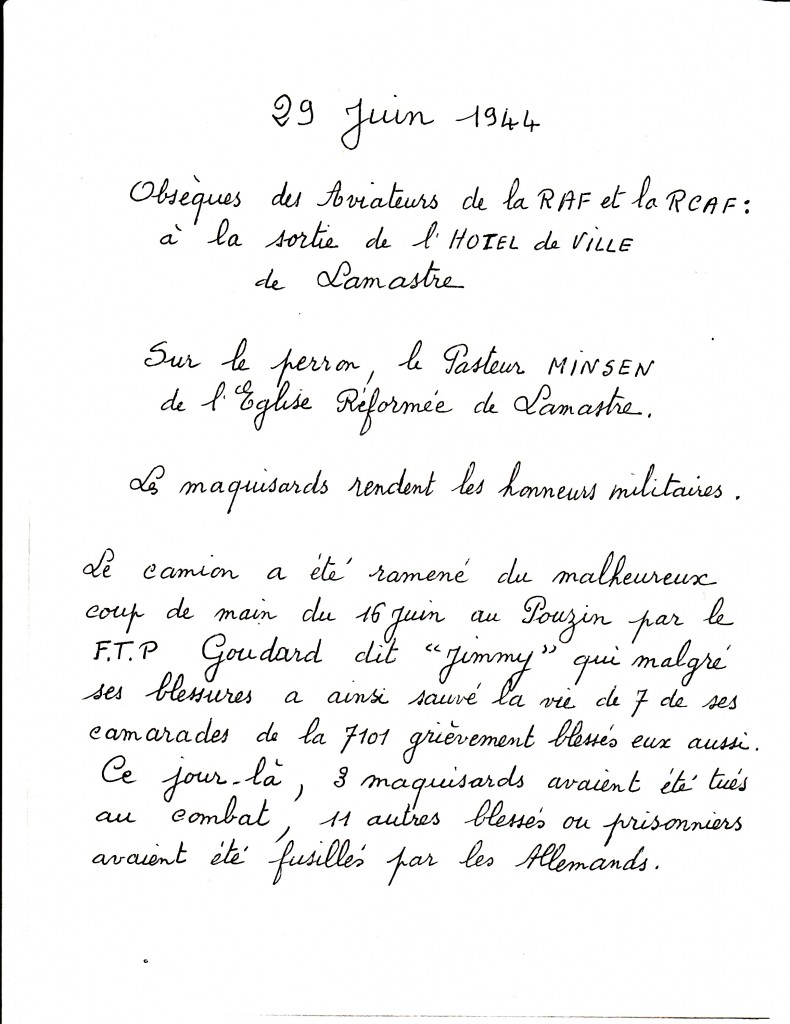 29 Juin 1944
Obsèques des Aviateurs de la RAF et la RCAF :
à la sortie de l'HOTEL de VILLE
de Lamastre
Sur le perron, le Pasteur MINSEN
de l'Eglise Réformée de Lamastre.
Les maquisards rendent les honneurs militaires.
Le camion a été ramené du malheureux
coup de main du 16 Juin au Pouzin par le
F.T.P Goudard dit "Jimmy" qui malgré
ses blessures a ainsi sauvé la vie de 7 de ses
camarades de la 7101 grièvement blessés eux aussi.
Ce jour-là, 3 maquisards avaient été tués
au combat, 11 autres blessés ou prisonniers
avaient été fusillés par les Allemands.